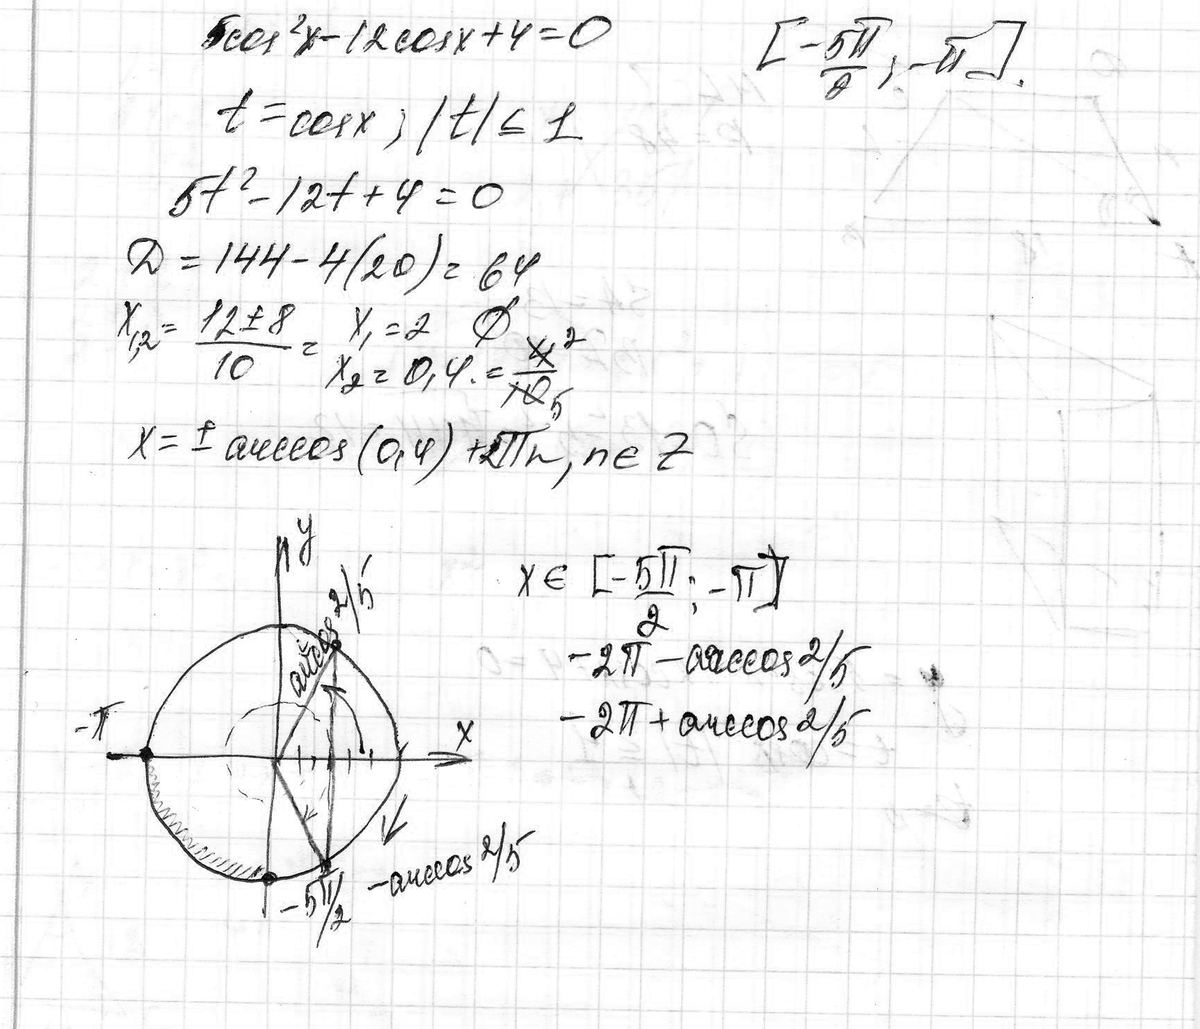 5cos²x-12cosx+4=0
[-5π/2; -π].
t=cosx; |t|≤1
5t²-12t+4=0
D=144-4(20)=64
x₁,₂=(12±8)/10= x₁=2 ∅
x₂=0,4.=4/10 2/5
x=±arccos(0,4)+2πn, n∈Z
y
arccos 2/5
x∈[-5π/2; -π]
-2π-arccos 2/5
-2π+arccos 2/5
-π
x
-5π/2
-arccos 2/5